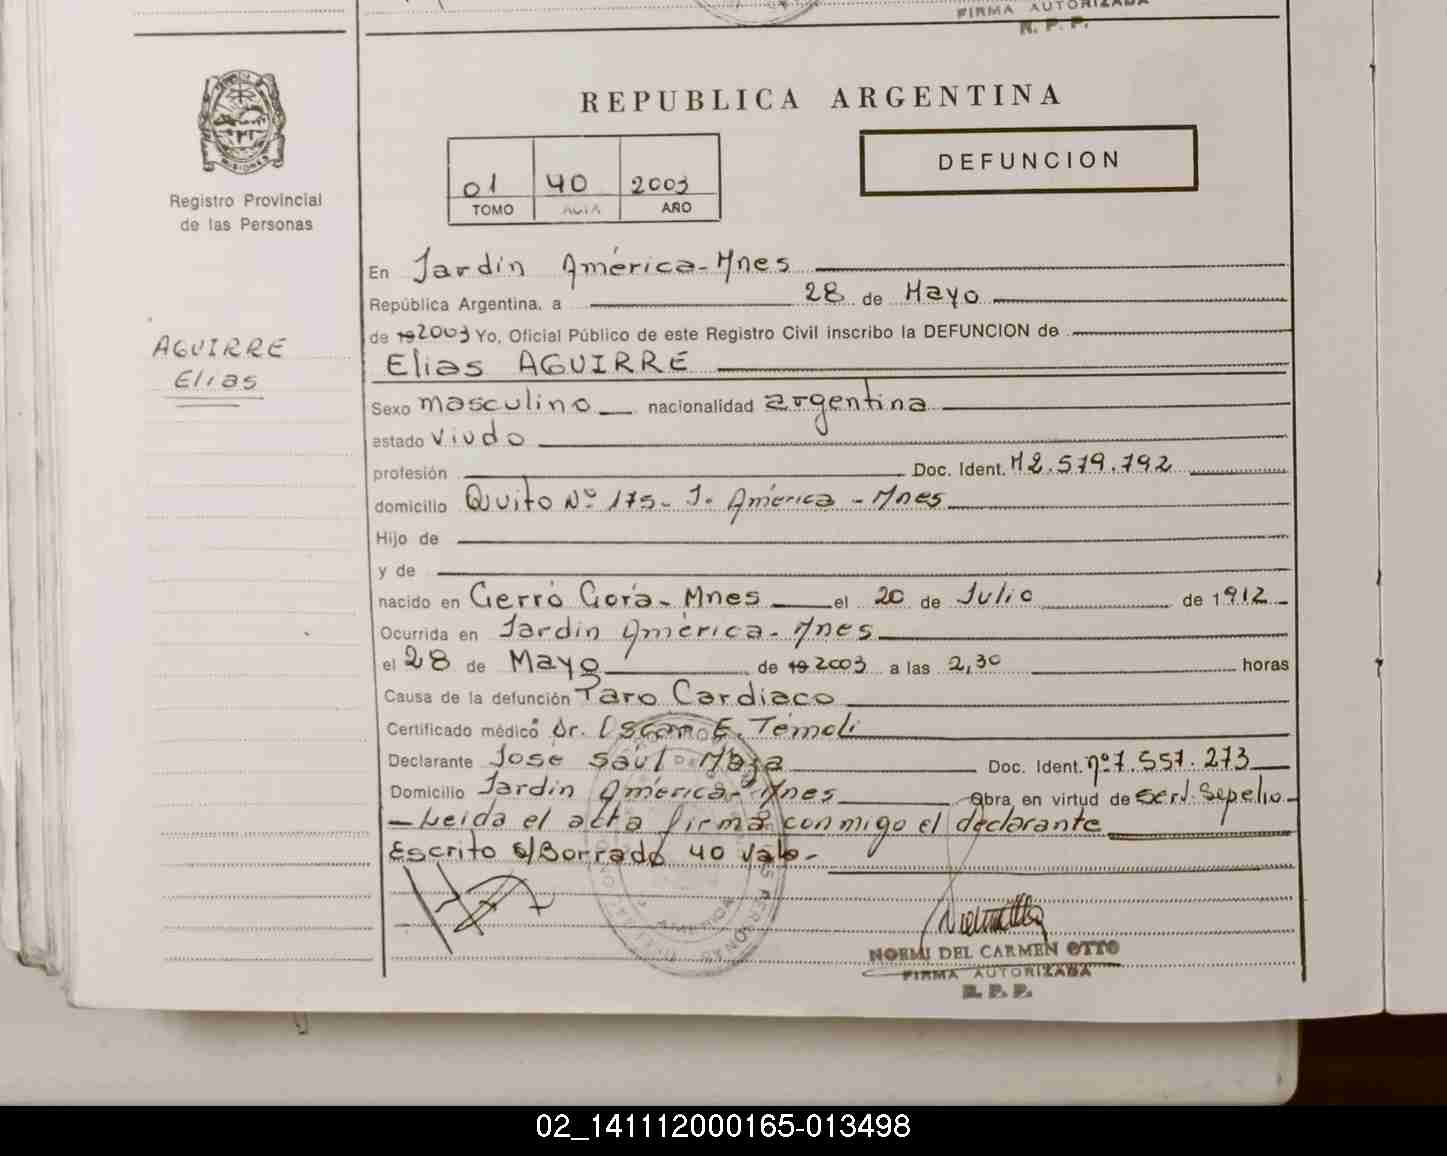 FIRMA AUTORIZADA
R. P. P.
MISIONES
Registro Provincial
de las Personas
AGUIRRE
Elias
REPUBLICA ARGENTINA
01 40 2003
TOMO ACTA AÑO
DEFUNCION
En Jardín América - Mnes
República Argentina, a 28 de Mayo
de 19 2003 Yo, Oficial Público de este Registro Civil inscribo la DEFUNCION de
Elias AGUIRRE
Sexo masculino nacionalidad argentina
estado Viudo
profesión Doc. Ident. M2.579.792
domicilio Quito Nº 175 - J. América - Mnes
Hijo de
y de
nacido en Cerró Corá - Mnes el 20 de Julio de 1912
Ocurrida en Jardín América - Mnes
el 28 de Mayo de 19 2003 a las 2,30 horas
Causa de la defunción Paro Cardiaco
Certificado médico Dr. Oscar E. Témoli
Declarante José Saúl Maza Doc. Ident. nº 7.557.273
Domicilio Jardín América - Mnes Obra en virtud de Serv. Sepelio -
- Leida el acta firma conmigo el declarante
Escrito s/Borrado 40 Vale -
NOEMI DEL CARMEN OTTO
FIRMA AUTORIZADA
R. P. P.
02_141112000165-013498